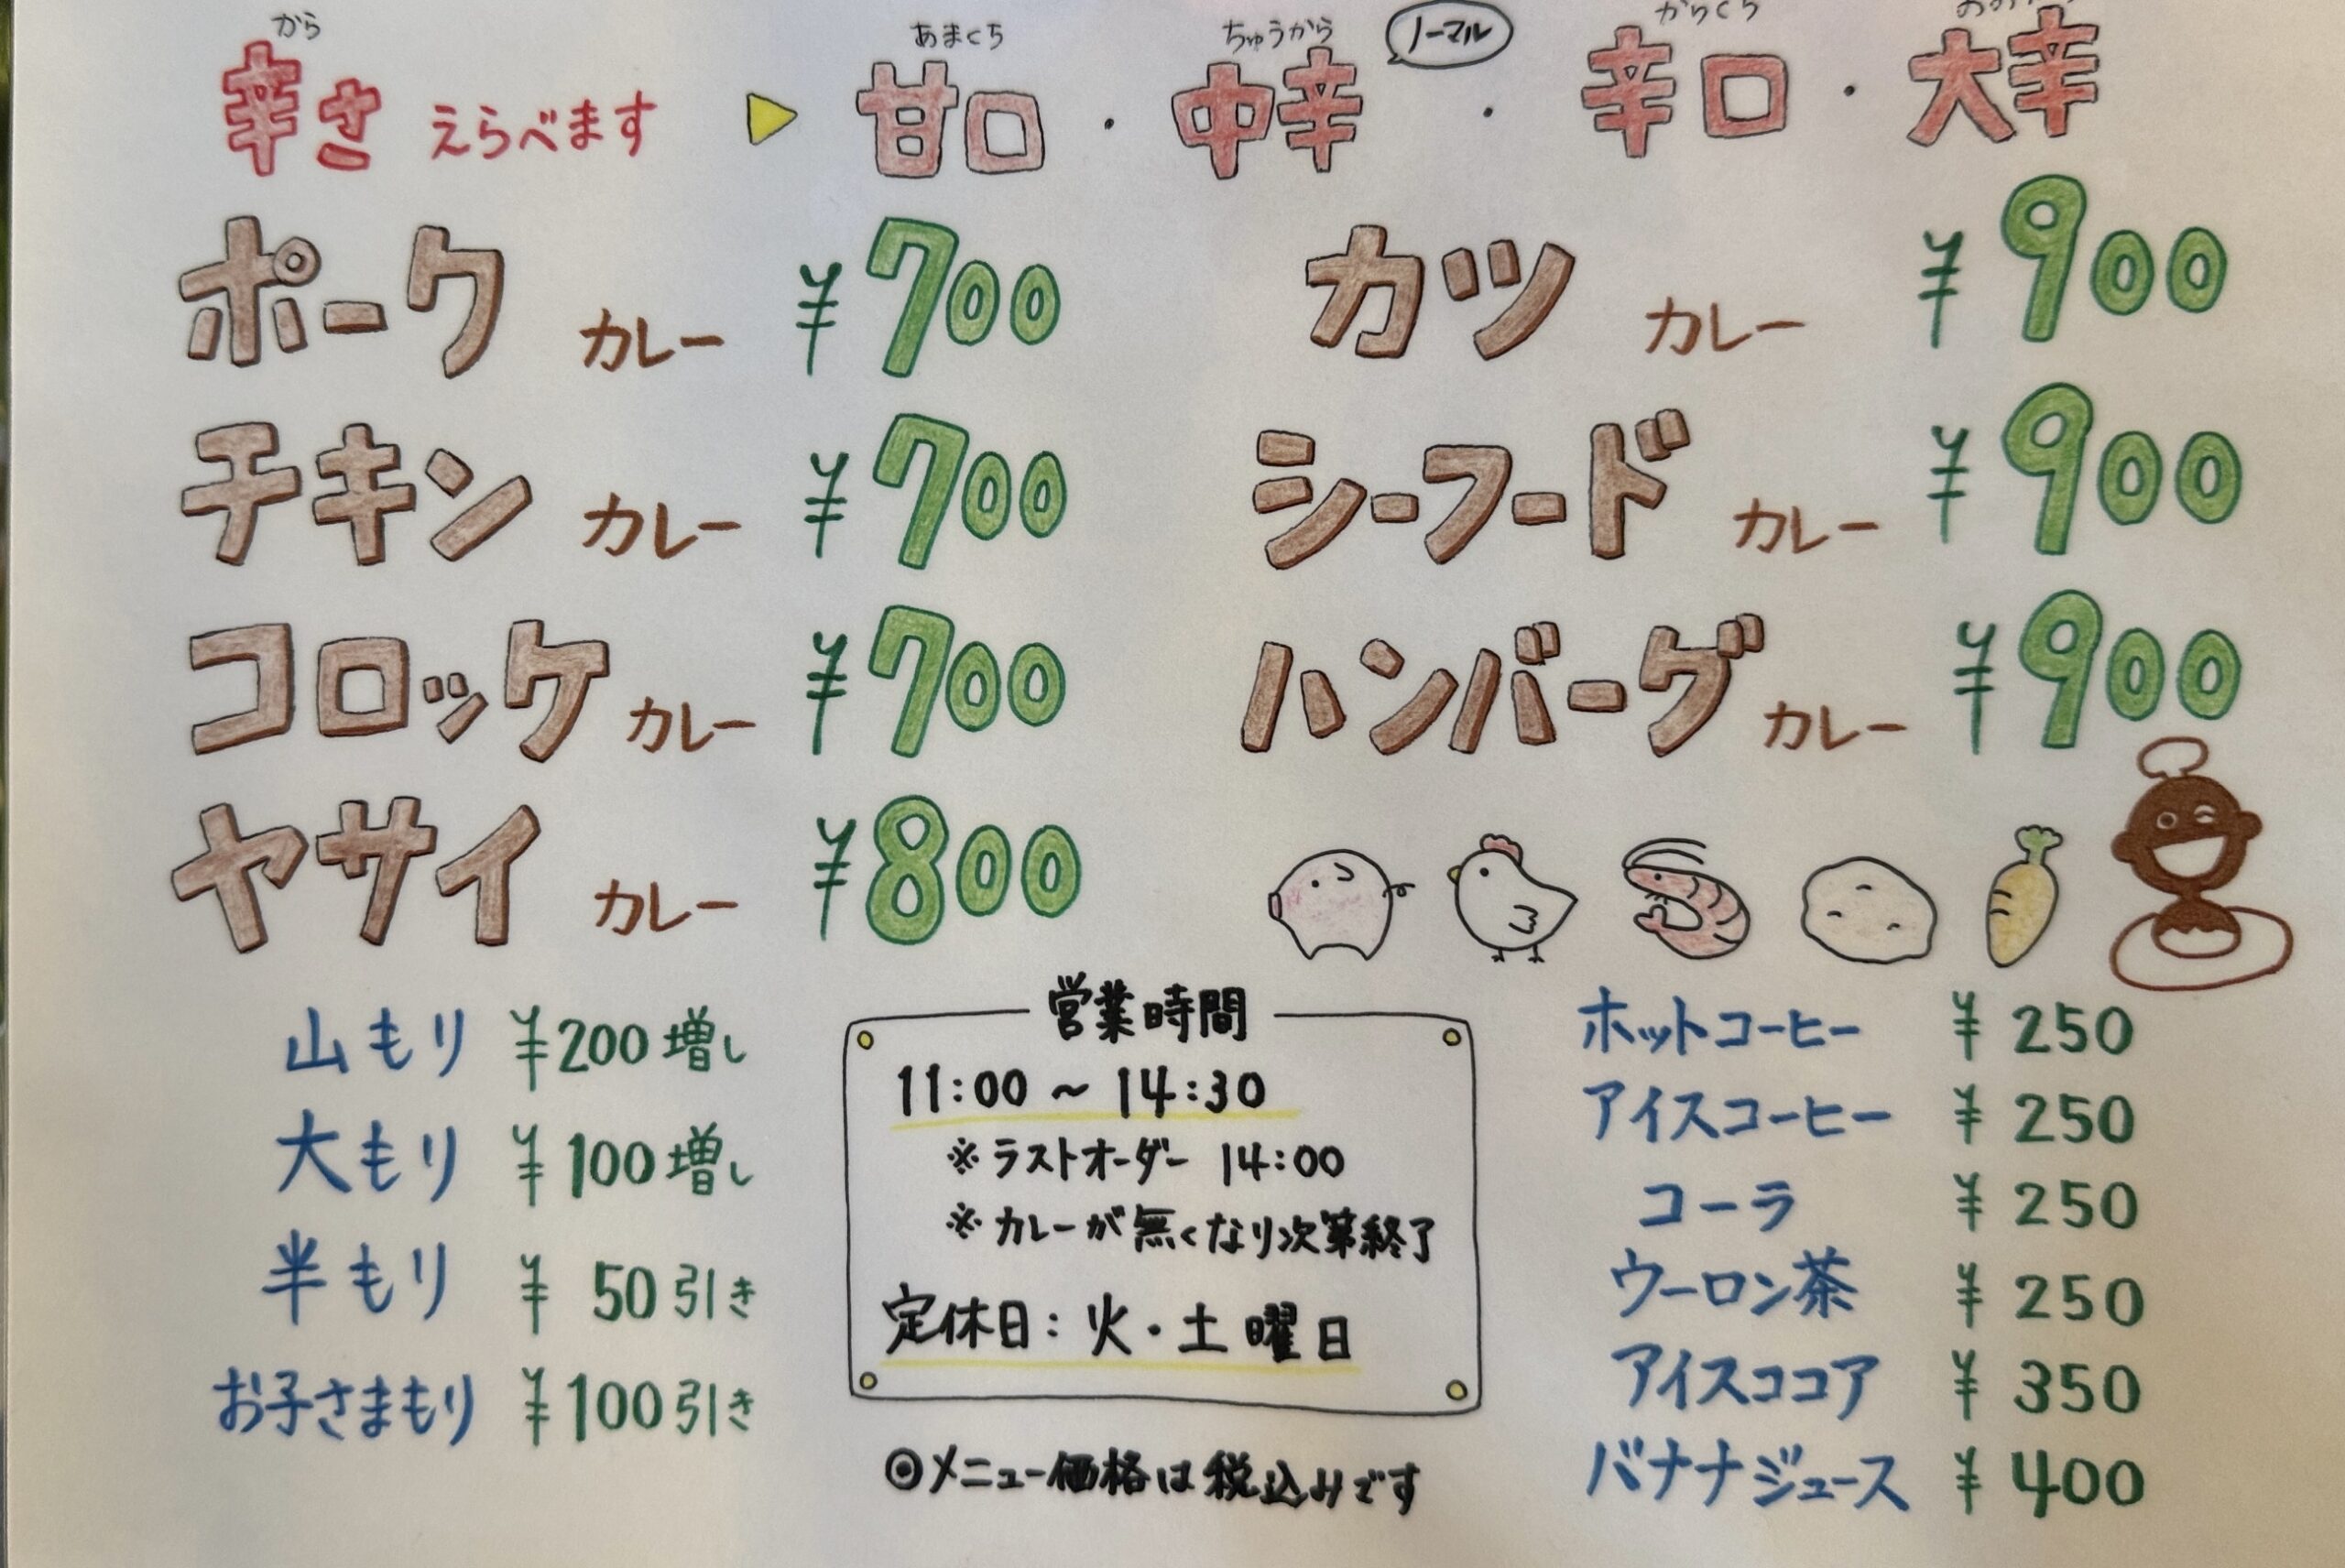 から あまくち ちゅうから ノーマル からくち
辛さ えらべます ▶ 甘口・中辛・辛口・大辛
ポークカレー ¥700
チキンカレー ¥700
コロッケカレー ¥700
ヤサイカレー ¥800
カツカレー ¥900
シーフードカレー ¥900
ハンバーグカレー ¥900
山もり ¥200増し
大もり ¥100増し
半もり ¥50引き
お子さまもり ¥100引き
営業時間
11:00〜14:30
※ラストオーダー 14:00
※カレーが無くなり次第終了
定休日:火・土曜日
◎メニュー価格は税込みです
ホットコーヒー ¥250
アイスコーヒー ¥250
コーラ ¥250
ウーロン茶 ¥250
アイスココア ¥350
バナナジュース ¥400